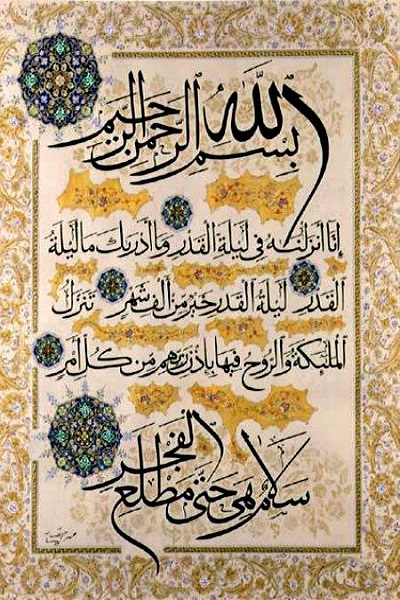 بسم الله الرحمن الرحيم
إنا أنزلنه في ليلة القدر وما أدريك ما ليلة
القدر ليلة القدر خير من ألف شهر تنزل
الملئكة والروح فيها بإذن ربهم من كل أمر
سلام هي حتى مطلع الفجر